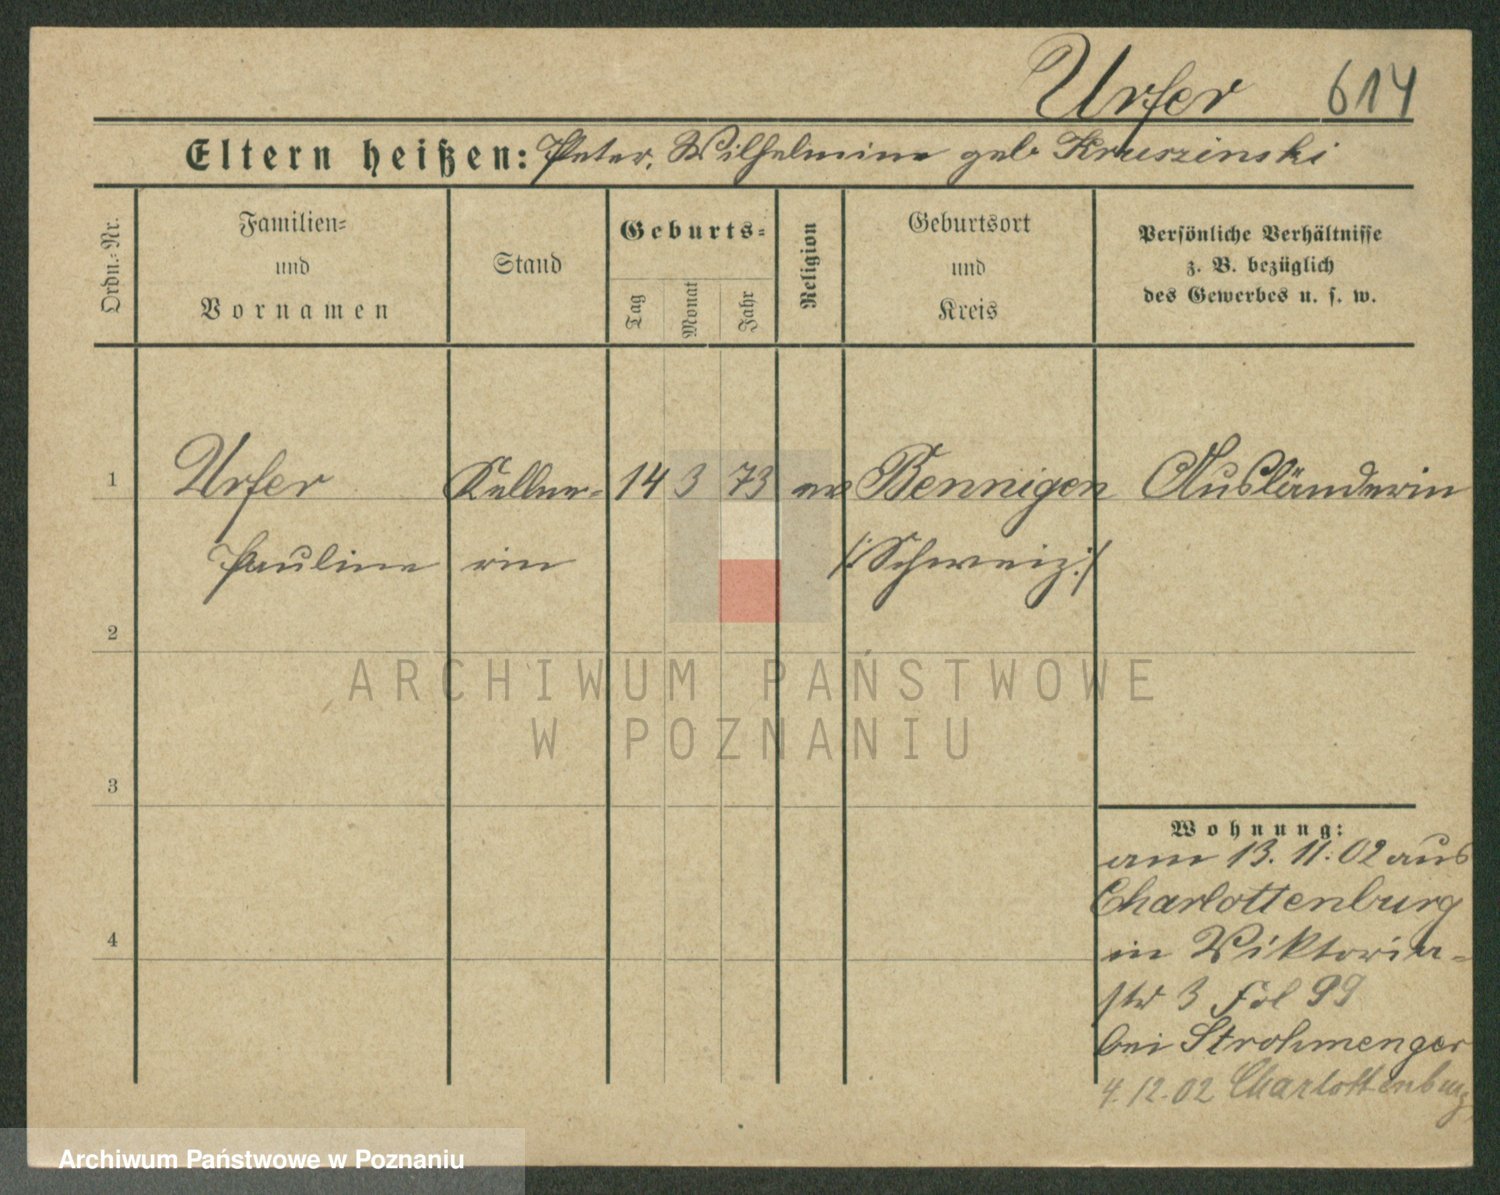 Urfer 614
Eltern heißen: Peter, Wilhelmine geb Kruszinski
Ordn.-Nr.
Familien-
und
Vornamen
Stand
Geburts-
Tag
Monat
Jahr
Religion
Geburtsort
und
Kreis
Persönliche Verhältnisse
z. B. bezüglich
des Gewerbes u. s. w.
1 Urfer Kellne- 14 3 73 ev Bennigen Ausländerin
Pauline rin /:Schweiz:/
2
ARCHIWUM PAŃSTWOWE
W POZNANIU
3
Wohnung:
am 13. 11. 02 aus
Charlottenburg
4
in Viktoria-
str 3 Fol 99
bei Strohmenger
4. 12. 02 Charlottenburg
Archiwum Państwowe w Poznaniu